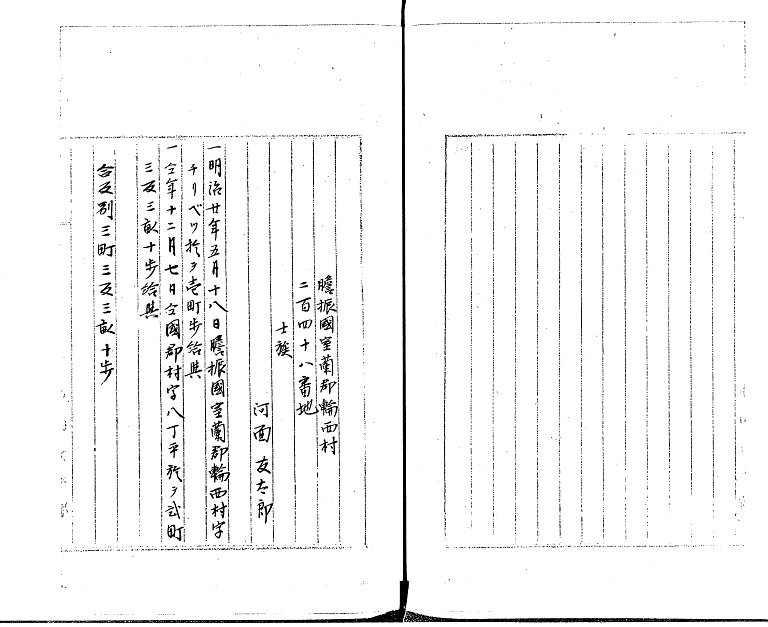 膽振國室蘭郡輪西村
二百四十八番地
士族
河西友太郎
一明治廿年五月十八日膽振國室蘭郡輪西村字
チリベツ於ヲ壱町歩給與
一仝年十二月七日仝國郡村字八丁平於ヲ弐町
三反三畝十歩給與
合反別三町三反三畝十歩